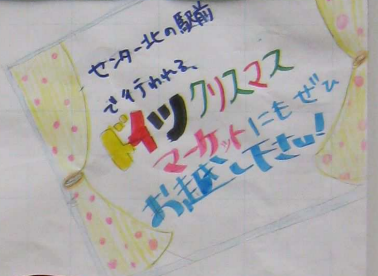 センター北の駅前
で行われる、
ドイツクリスマス
マーケットにもぜひ
お越し下さい!